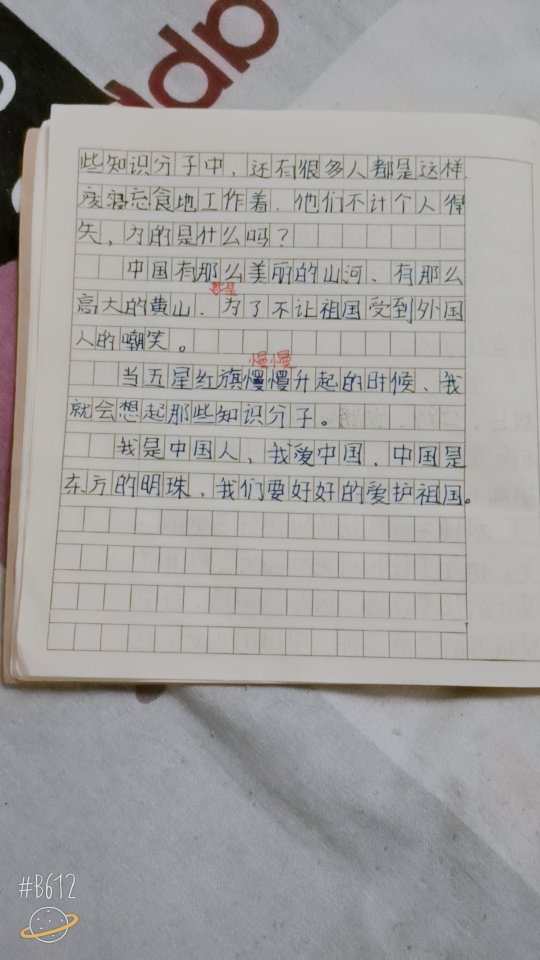 dp
些知识分子中，还有很多人都是这样
废寝忘食地工作着，他们不计个人得
失，为的是什么吗？
中国有那么美丽的山河、有那么
都是
高大的黄山、为了不让祖国受到外国
人的嘲笑。
慢慢
当五星红旗慢慢升起的时候、我
就会想起那些知识分子。
我是中国人，我爱中国，中国是
东方的明珠，我们要好好的爱护祖国。
#B612